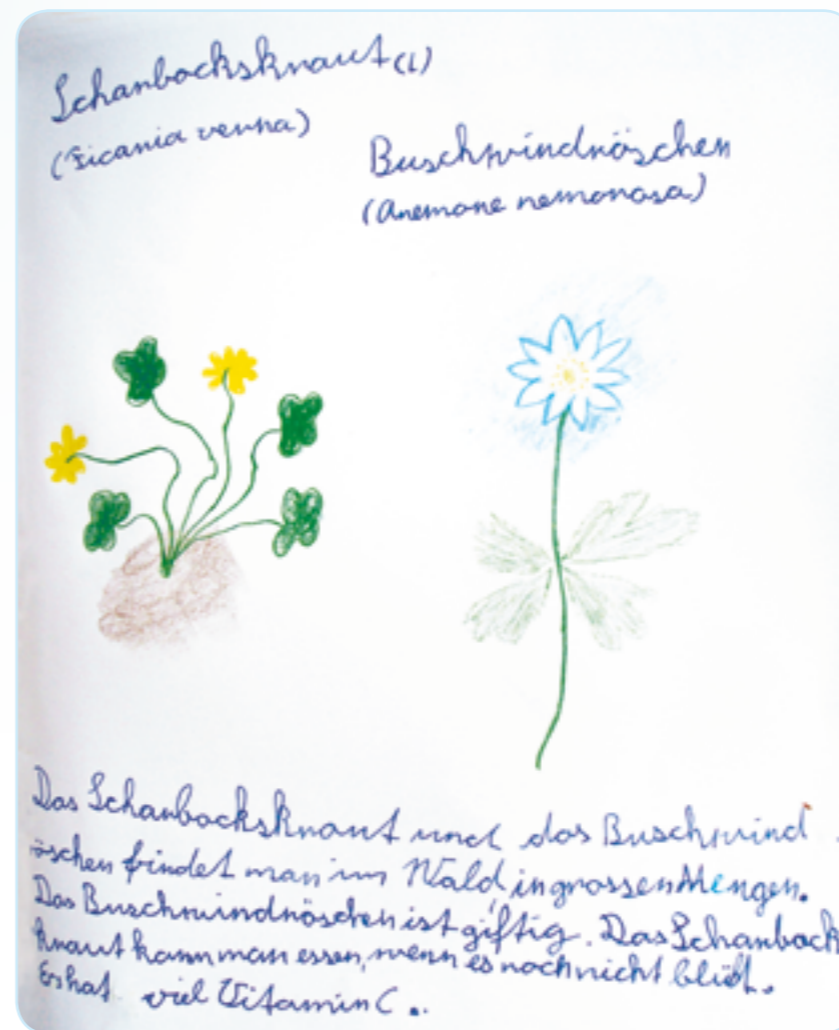 Scharbockskraut (L)
(Ficaria verna)
Buschwindröschen
(Anemone nemorosa)
Das Scharbockskraut und das Buschwind
röschen findet man im Wald, in grossen Mengen.
Das Buschwindröschen ist giftig. Das Scharbock
kraut kann man essen, wenn es noch nicht blüt.
Es hat viel Vitamin C.